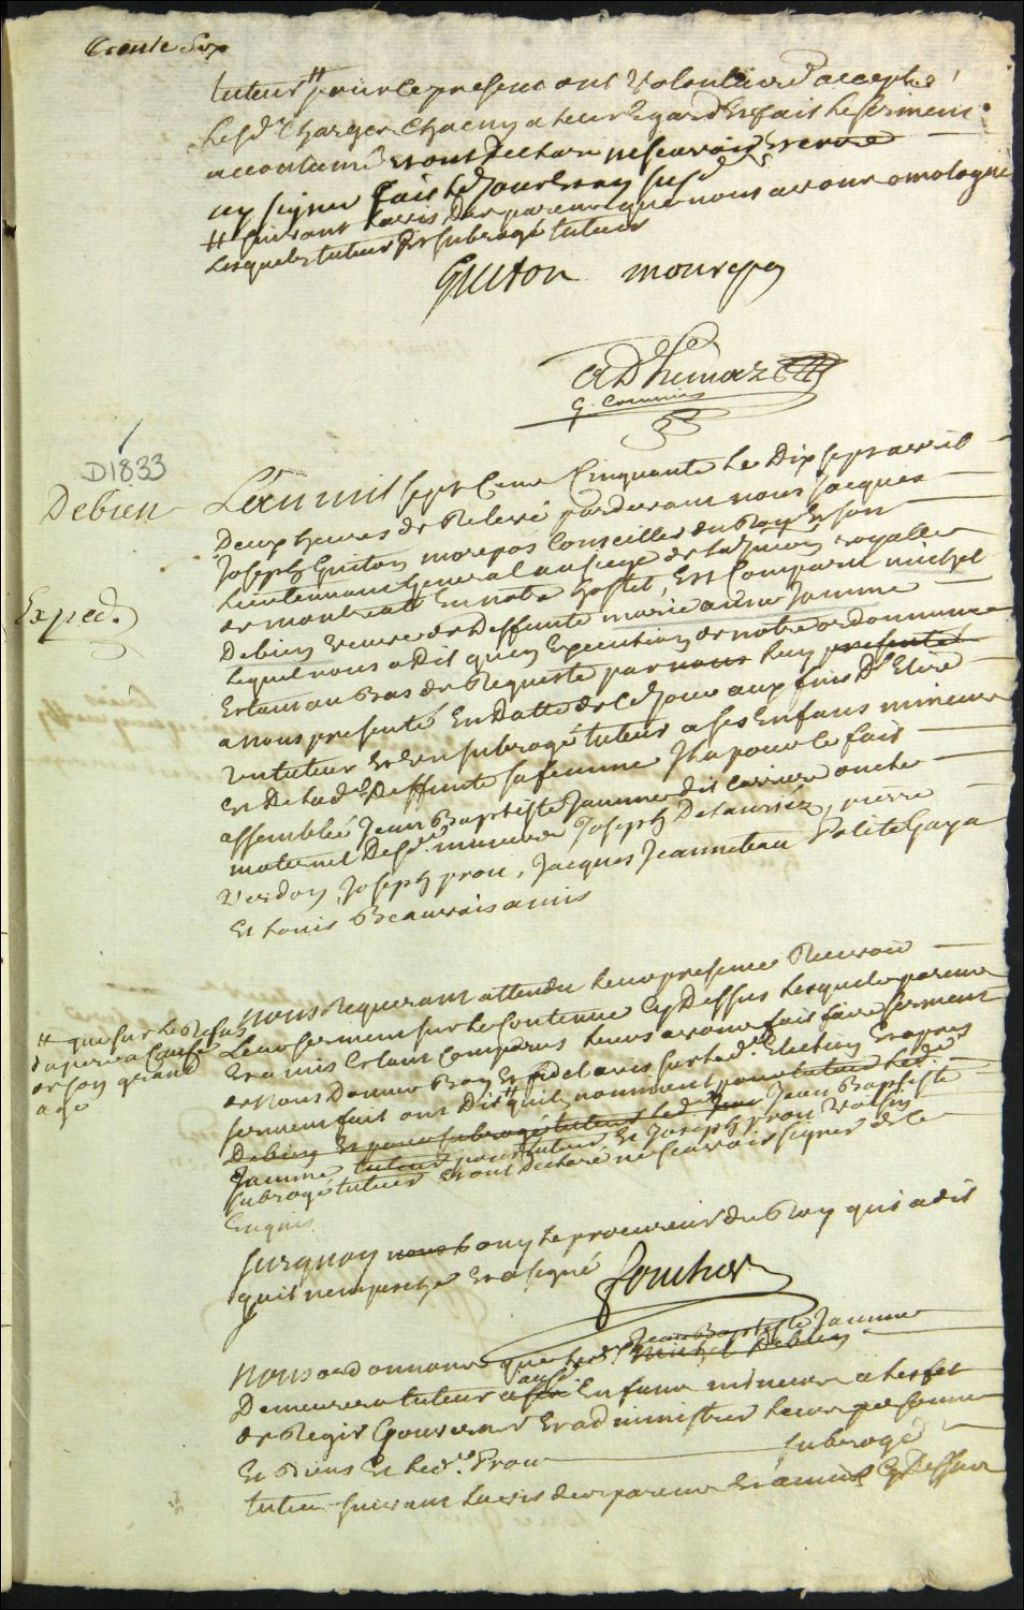 trente Sep
tuteurs # pour ce presens ont Volontairement accepté
lesd. Charges Chacun a leur Egard Et fait le serment
accoutumé Et ont declaré ne scavoir Ecrire
ny signer fait led. jour Et an susd.
# suivant lavis des parens que nous avons omologué
lesquels tuteur Et subrogé tuteur
Guiton monrepos
ADhemar
G. Commis
D1833
Debien
Exped.
L'an mil sept Cent Cinquante le Dix sept avril
Deux heures de Relevé pardevant nous Jacques
Joseph Guiton morepos Conseiller du Roy Et son
Lieutenant General au siege de la Jurion royalle
de montreal En notre hostel, Est Comparu michel
Debien veuve de Deffunte marie anne Jamme
lequel nous a dit quen Execution de notre ordonnance
Estant au Bas de Requeste par nous luy presentée
a nous presenté En datte de ce jour aux fins D'Elire
un tuteur Et un subrogé tuteur a ses Enfans mineurs
et De lad. Deffunte sa femme Il a pour ce fait
assemblée Jean Baptiste Jamme dit Carriere oncle
maternel Desd. mineurs Joseph Delauriez, pierre
Verdon, Joseph prou, Jacques Jeanneteau Polite Gaya
Et Louis Beauvais amis
nous Requerant attendu leur presence Recevoir
Leur serment sur le Contenue Cy Dessus lesquels parens
Et amis Estant Comparus leurs avons fait faire serment
de nous Donner Bon Et fidel avis sur lad. Election Et apres
serment fait ont Dit # quils nomment pour tuteur led.
Debien Et pour subrogé tuteur led. Jean Jean Baptiste
Jamme tuteur pour tuteur Et Joseph prou Voisin
subrogé tuteur Et ont Declaré ne scavoir signer de ce
Enquis
# que sur le Refus
du pere a Cause
de son grand
age
surquoy nous ouy le procureur du Roy qui a dit
quil nempeche Et a signé
foucher
Nous ordonnons que led. Jean Baptiste Jamme
Michel Debien
Demeurera tuteur a ses auxd. Enfans mineurs a leffet
de Regir Gouverner Et administrer leurs personne
Et Biens Et led. Prou subrogé
tuteur suivant lavis des parens Et amis Cy Dessus